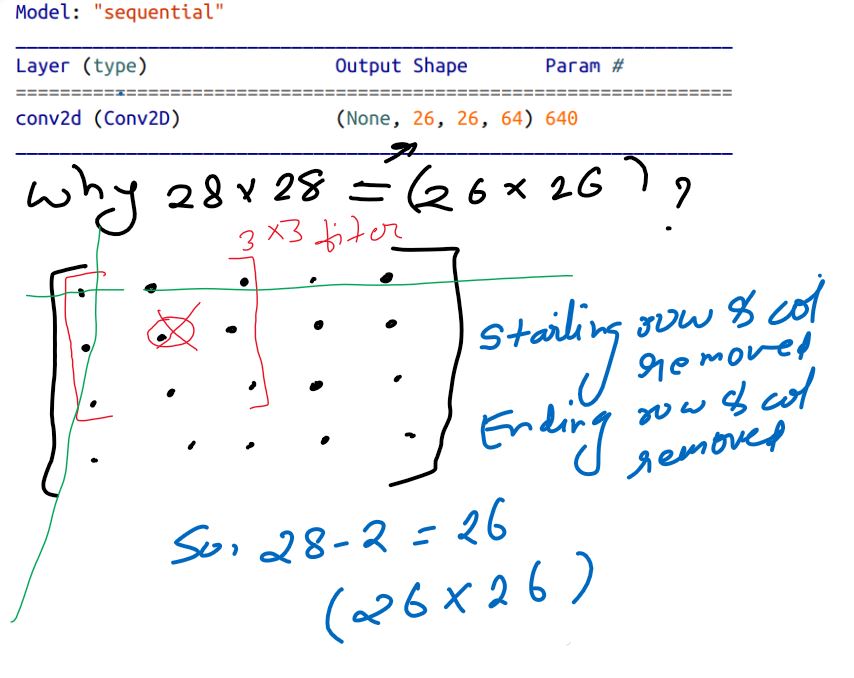 Model: "sequential"
Layer (type) Output Shape Param #
=================================================================
conv2d (Conv2D) (None, 26, 26, 64) 640
why 28 x 28 = (26 x 26) ?
3 x3 filter
Starting row & col
removed
Ending row & col
removed
So, 28-2 = 26
(26 x 26)